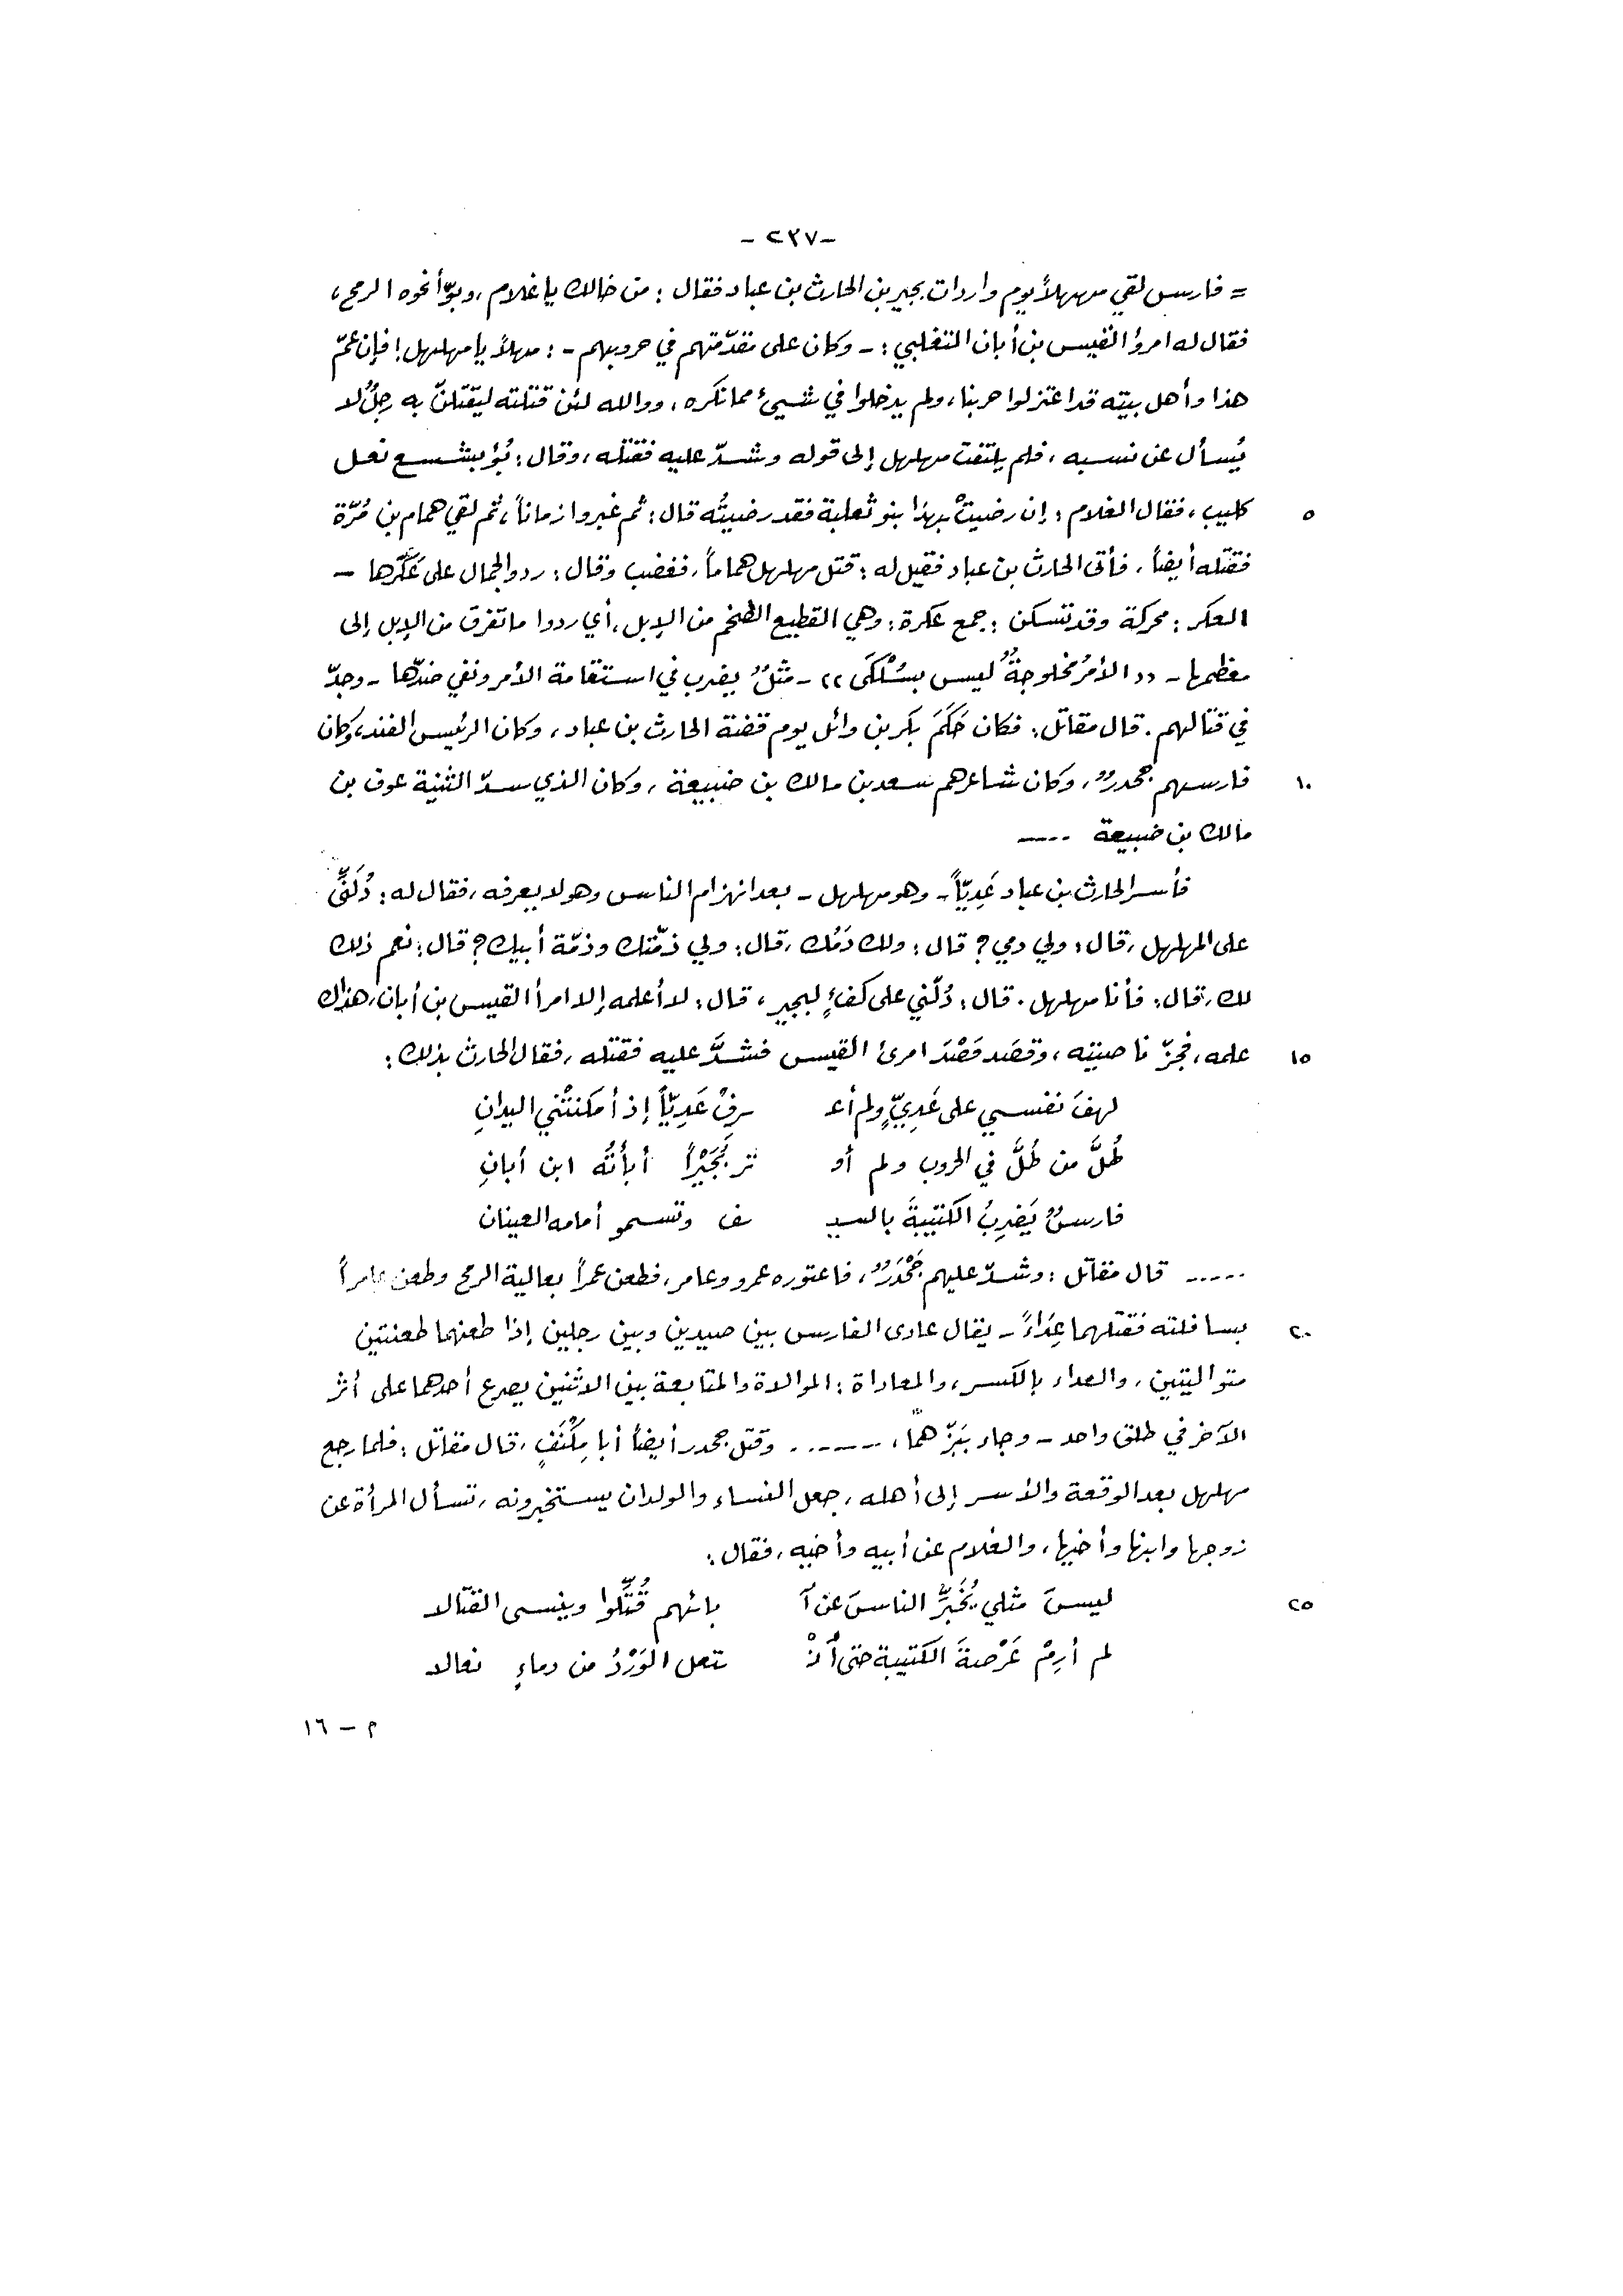 -٢٣٧-
= فارس لقي مهلهلاً يوم واردات بجير بن الحارث بن عباد فقال : من خالك يا غلام ، وبوّأ نحوه الرمح ،
فقال له امرؤ القيس بن أبان التغلبي : - وكان على مقدّمتهم في حروبهم - : مهلاً يا مهلهل ! فإن عمّ
هذا وأهل بيته قد اعتزلوا حربنا ، ولم يدخلوا في شيئ مما نكره ، ووالله لئن قتلته ليُقتلنّ به رجلٌ لا
يُسأل عن نسبه ، فلم يلتفت مهلهل إلى قوله وشدّ عليه فقتله ، وقال : بُؤ بشسع نعل
٥ كليب ، فقال الغلام : إن رضيتْ بهذا بنو ثعلبة فقد رضيتُه قال : ثم غبروا زماناً ، ثم لقي همام بن مُرّة
فقتله أيضاً ، فأتى الحارث بن عباد فقيل له : قتل مهلهل هماماً ، فغضب وقال : ردوا الجمال على عَكَرِها -
العكر : محركة وقد تسكن : جمع عكرة : وهي القطيع الضخم من الإبل ، أي ردوا ما تفرق من الإبل إلى
معظمها - (( الأمرُ مخلوجةٌ ليس بسُلْكَى )) - مثلٌ يضرب في استقامة الأمر ونفي ضدّها - وجدّ
في قتالهم . قال مقاتل : فكان حَكَمَ بكر بن وائل يوم قضة الحارث بن عباد ، وكان الرئيس الفند ، وكان
١٠ فارسهم جحدرٌ ، وكان شاعرهم سعد بن مالك بن ضبيعة ، وكان الذي سدّ الثنية عوف بن
مالك بن ضبيعة -----
فأسر الحارث بن عباد عَدِيّاً - وهو مهلهل - بعد انهزام الناس وهو لا يعرفه ، فقال له : دُلّني
على المهلهل ، قال : ولي دمي ؟ قال : ولك دَمُك ، قال : ولي ذمّتك وذمّة أبيك ؟ قال : نعم ذلك
لك ، قال : فأنا مهلهل . قال : دُلّني على كفءٍ لبجير ، قال : لا أعلمه إلا امرأ القيس بن أبان ، هذاك
١٥ علمه ، فجزّ ناصيته ، وقصَد قَصْدَ امرئ القيس فشدَّ عليه فقتله ، فقال الحارث بذلك :
لهفَ نفسي على عَدِيٍّ ولم أعـ رِفْ عَدِيّاً إذ أمكنتْني اليدانِ
طُلَّ من طُلَّ في الحروب ولم أو تر بُجَيْراً أبأتُه ابن أبانِ
فارسٌ يَضرِبُ الكتيبةَ بالسيـ ـف وتسمو أمامه العينان
----- قال مقاتل : وشدّ عليهم جَحْدَرٌ ، فاعتوره عمرو وعامر ، فطعن عمراً بعالية الرمح وطعن عامراً
٢٠ بسافلته فقتلهما عِدَاءً - يقال عادى الفارس بين صيدين وبين رجلين إذا طعنهما طعنتين
متواليتين ، والعداء بالكسر ، والمعاداة : الموالاة والمتابعة بين الاثنين يصرع أحدهما على أثر
الآخر في طلق واحد - وجاء ببَزّهما ، ------ وقتل جحدر أيضاً أبا مِكْنَفٍ ، قال مقاتل : فلما رجع
مهلهل بعد الوقعة والأسر إلى أهله ، جعل النساء والولدان يستخبرونه ، تسأل المرأة عن
زوجها وابنها وأخيها ، والغلام عن أبيه وأخيه ، فقال :
٢٥ ليسَ مثلي يُخَبِّرُ الناسَ عن آ بائهم قُتِّلوا وينسى القتالا
لم أرِمْ عَرْصةَ الكتيبة حتى أنْـ ـتعل الوَرْدُ من دماءٍ نعالا
م - ١٦